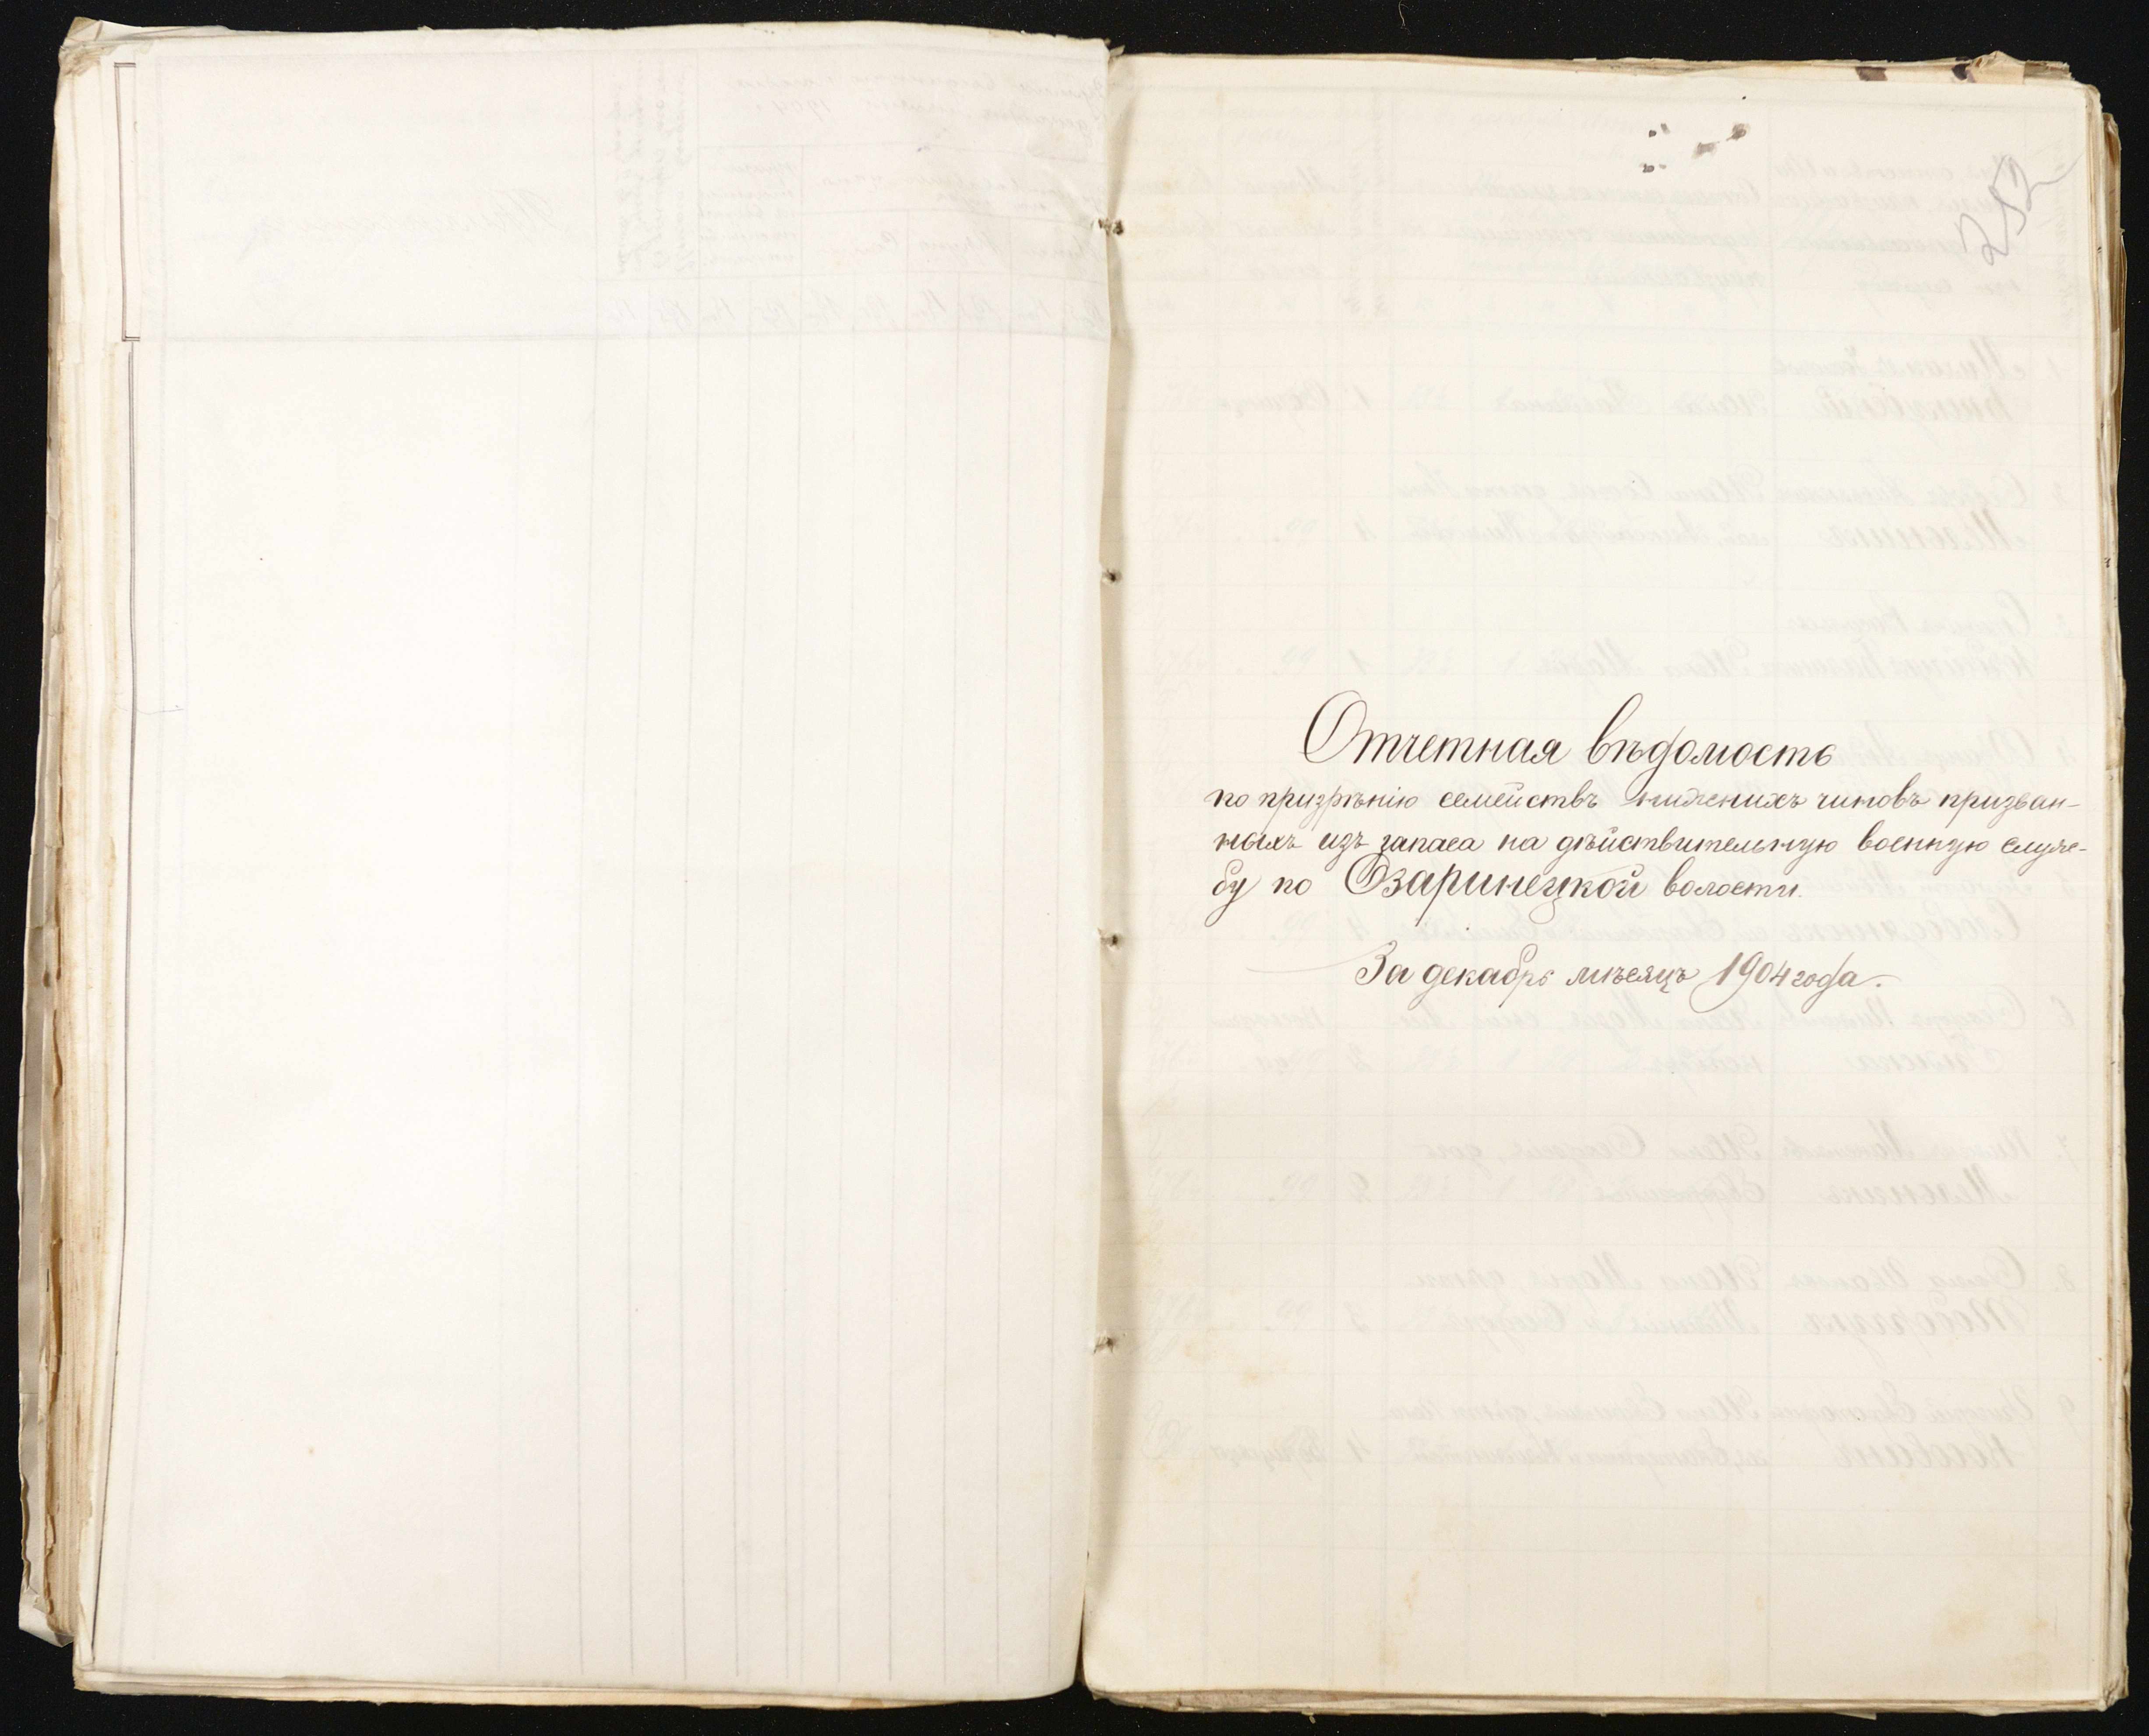 252
Отчетная вѣдомость
по призрѣнію семействъ нижнихъ чиновъ призван-
ныхъ изъ запаса на дѣйствительную военную служ-
бу по Озаринецкой волости.
За декабрь мѣсяцъ 1904 года.